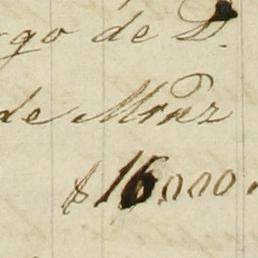 go de D.
de Mraz
$16,000.